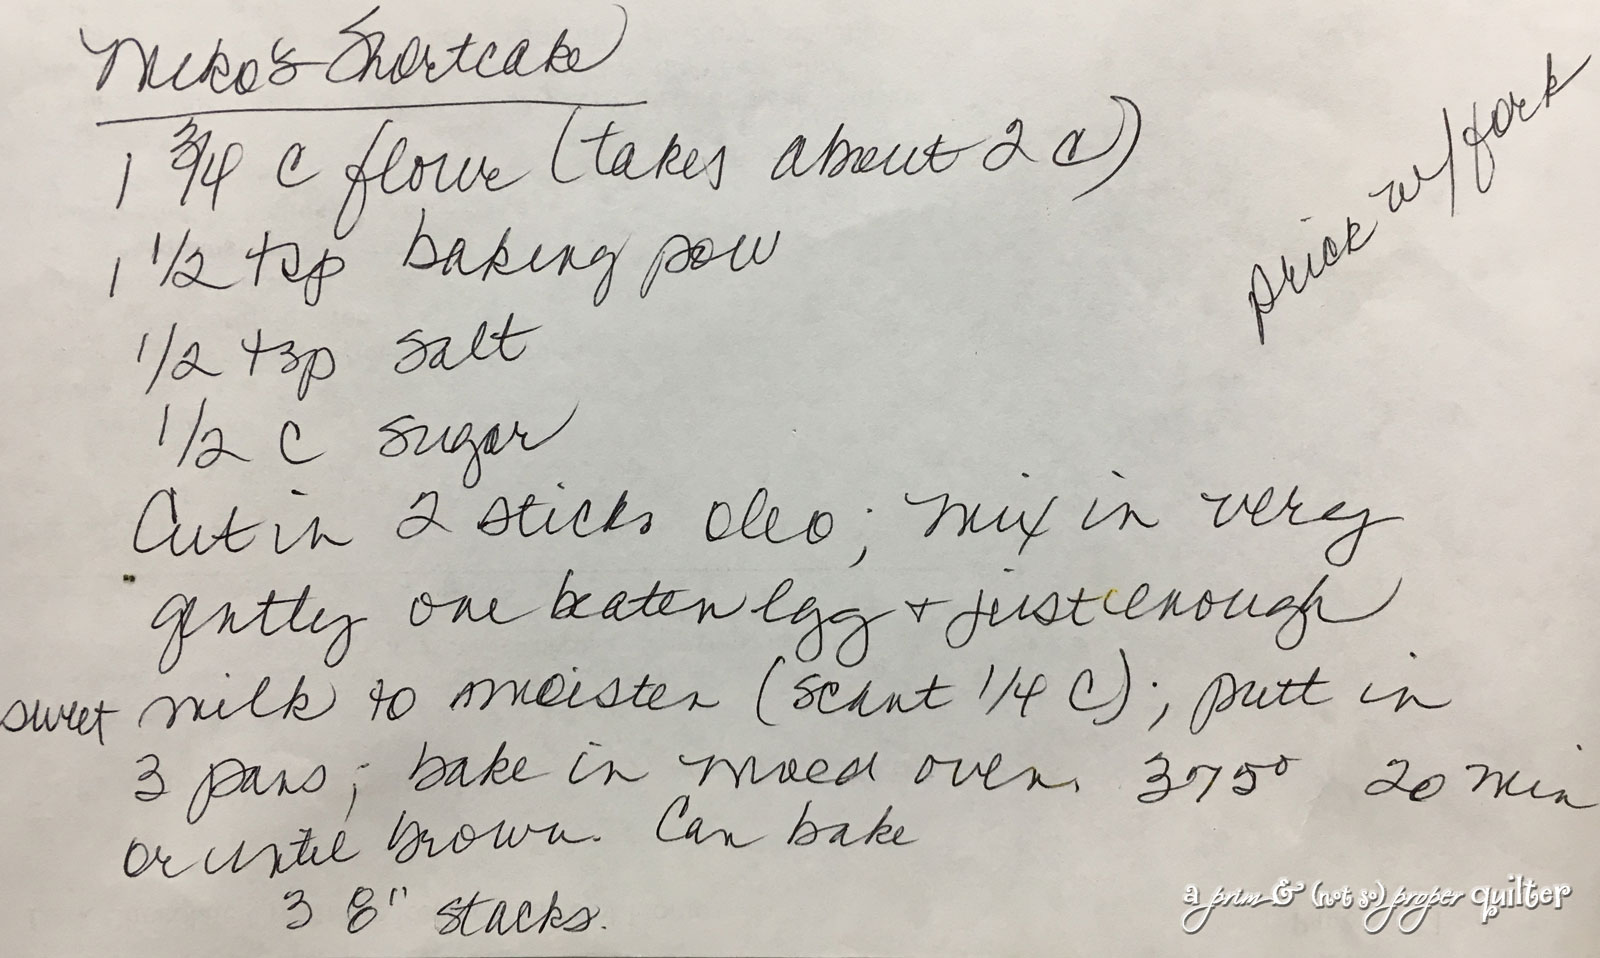 Meko's Shortcake
1 3/4 c flour (takes about 2 c)
prick w/ fork
1 1/2 tsp baking pow
1/2 tsp salt
1/2 c sugar
Cut in 2 sticks oleo; mix in very
gently one beaten egg + just enough
sweet milk to moisten (scant 1/4 c); putt in
3 pans; bake in moed oven. 375° 20 min
or until brown. Can bake
3 8" stacks.
a prim & (not so) proper quilter